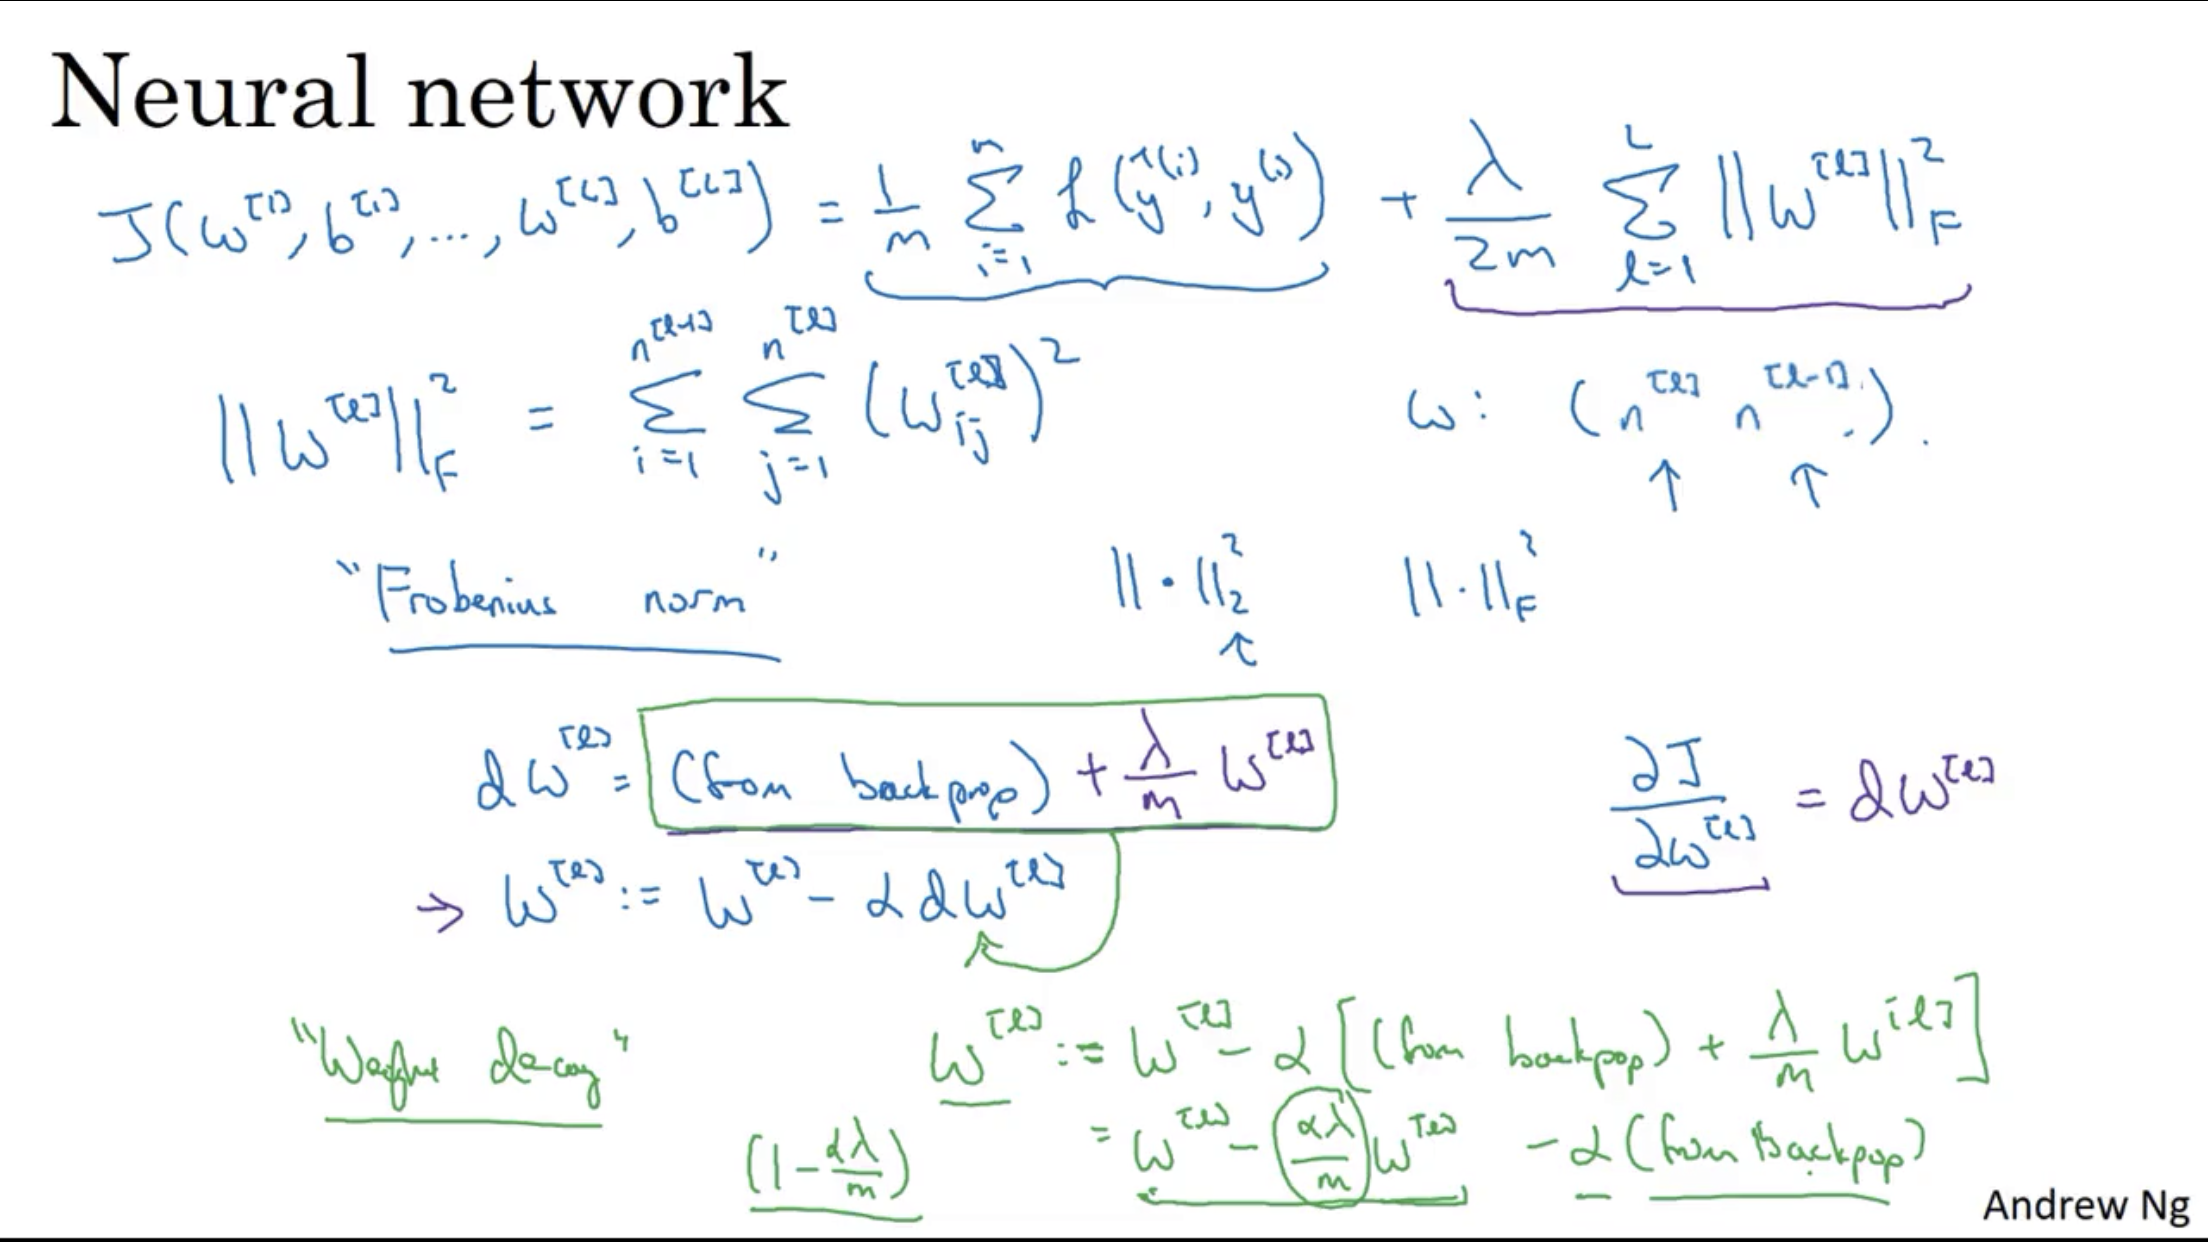 Neural network
J(w^[1], b^[1], ..., w^[L], b^[L]) = 1/m Σ_{i=1}^{m} ℒ(ŷ^(i), y^(i)) + λ/2m Σ_{l=1}^{L} ||w^[l]||_F^2
||w^[l]||_F^2 = Σ_{i=1}^{n^[l-1]} Σ_{j=1}^{n^[l]} (w_ij^[l])^2
w: (n^[l] n^[l-1]).
↑ ↑
"Frobenius norm" ||·||_2^2 ||·||_F^2
↑
dw^[l] = (from backprop) + λ/m w^[l]
∂J/∂w^[l] = dw^[l]
→ w^[l] := w^[l] - α dw^[l]
"Weight decay" w^[l] := w^[l] - α [(from backpop) + λ/m w^[l]]
(1 - αλ/m) = w^[l] - αλ/m w^[l] - α (from backpop)
Andrew Ng